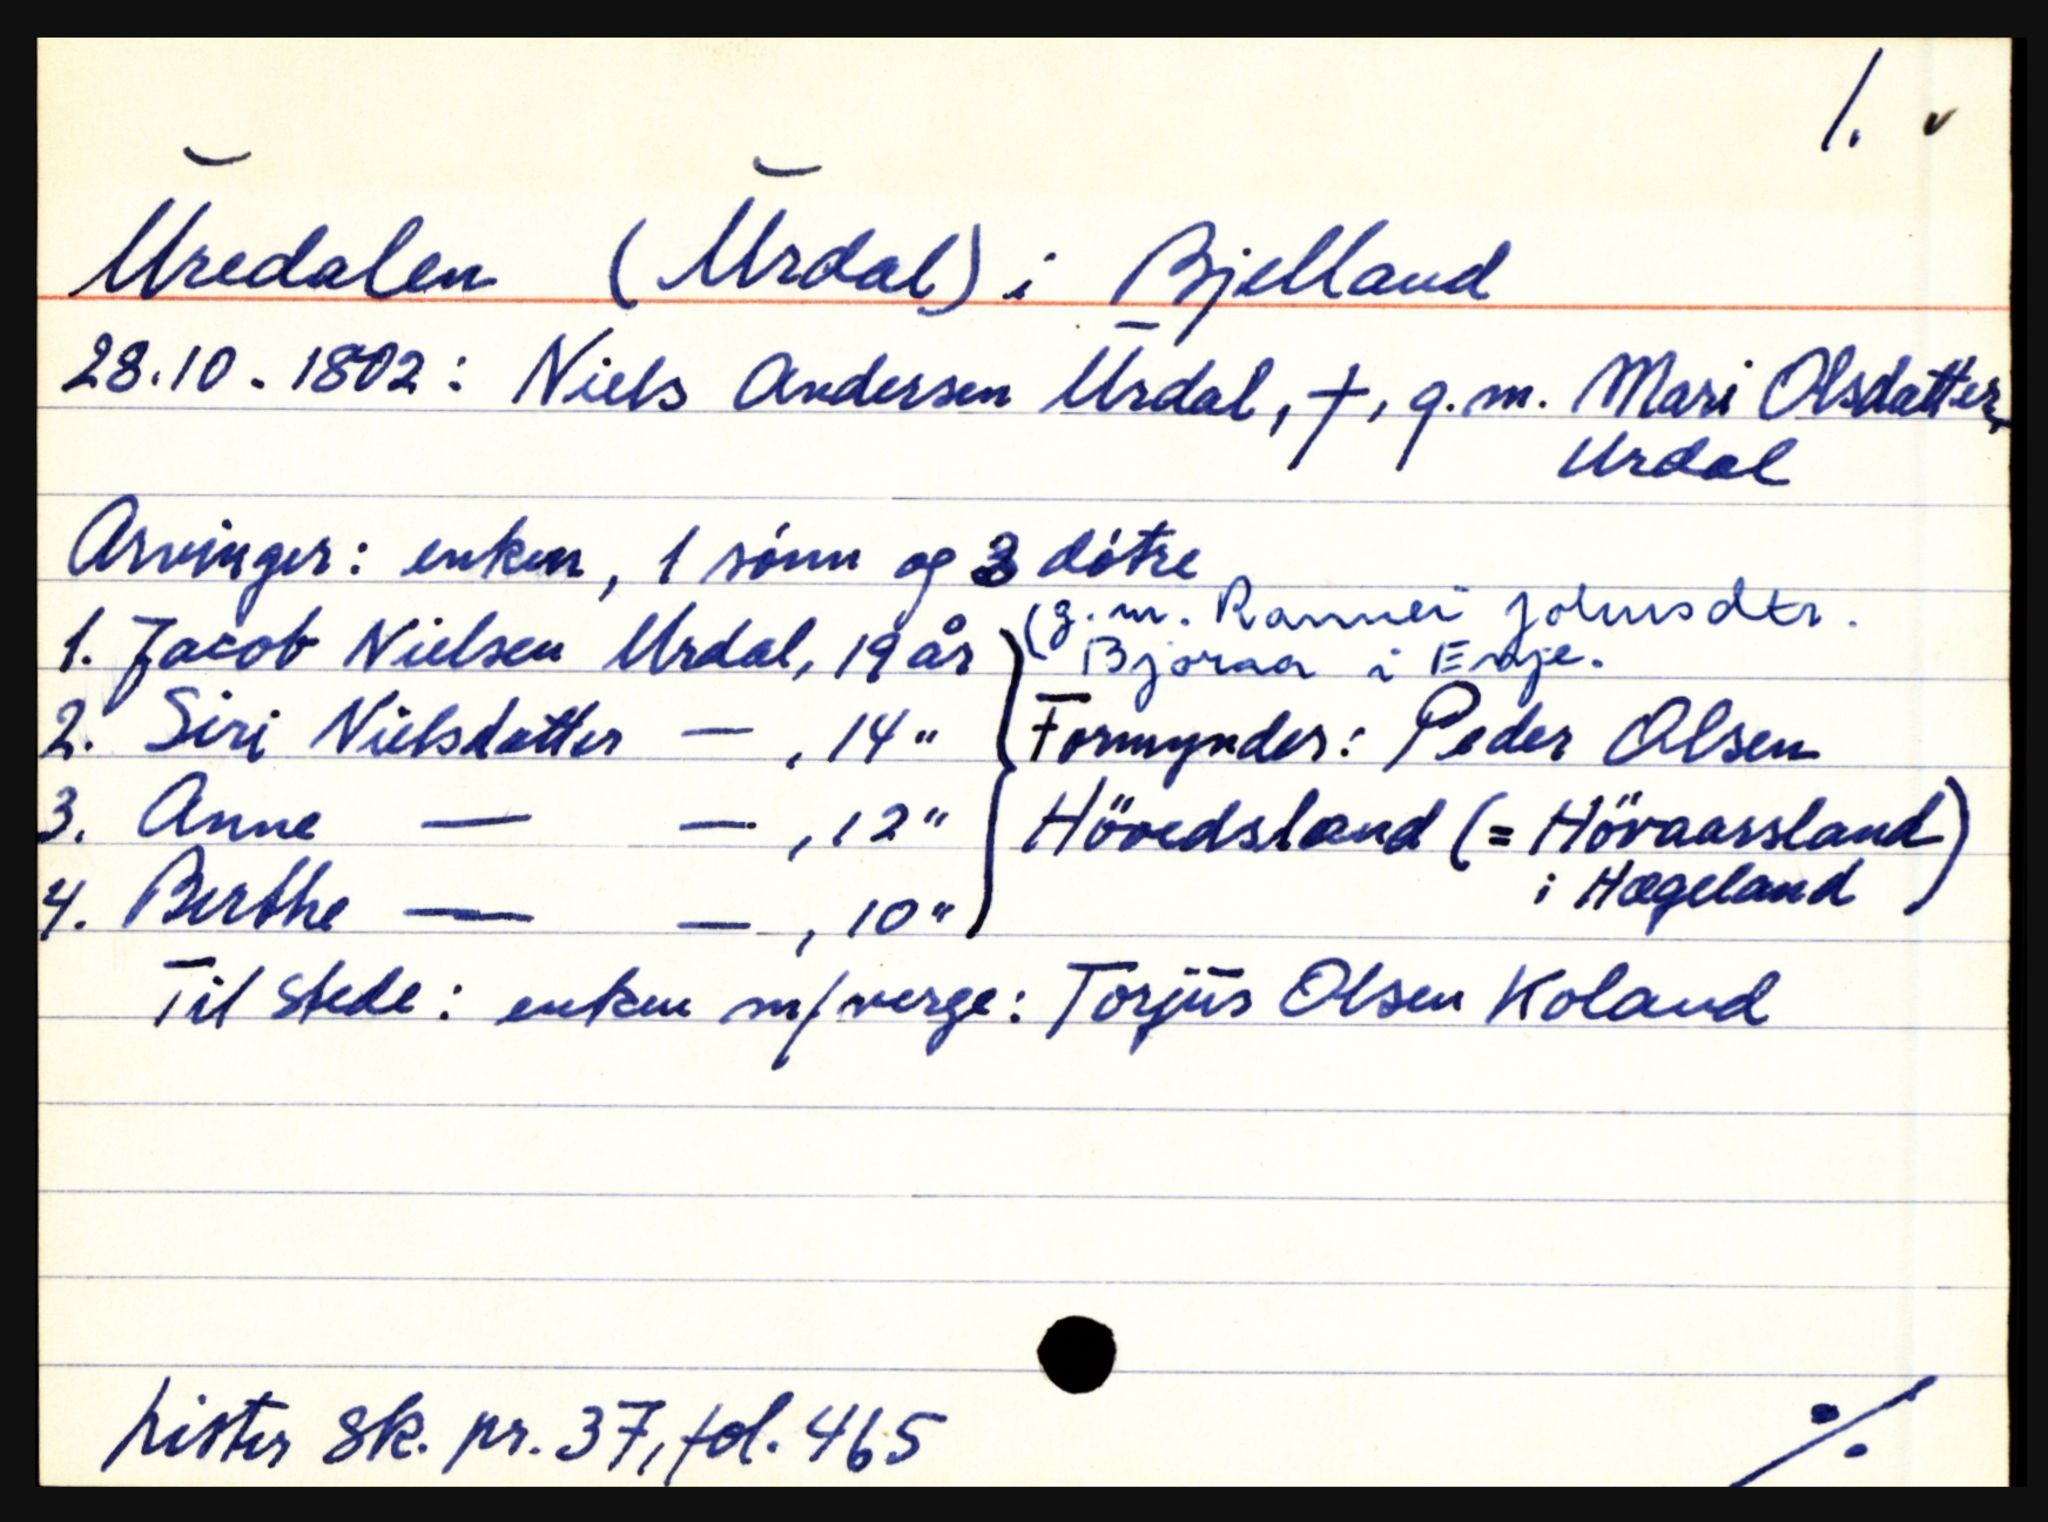 1. v
Uredalen (Urdal) i Bjelland
28.10.1802: Niels Andersen Urdal, †, g.m. Mari Olsdatter
Urdal
Arvinger: enken, 1 sønn og 3 døtre
(g.m. Rannei Johnsdtr.
1. Jacob Nielsen Urdal, 19 år
Bjoraa i Evje.
2. Siri Nielsdatter — , 14 " Formynder: Peder Olsen
3. Anne — — , 12 " Hövedsland (= Hövaarsland)
i Hægeland
4. Berthe — — , 10 "
Til stede: enken m/verge: Torjus Olsen Koland
Lister sk. pr. 37, fol. 465
%